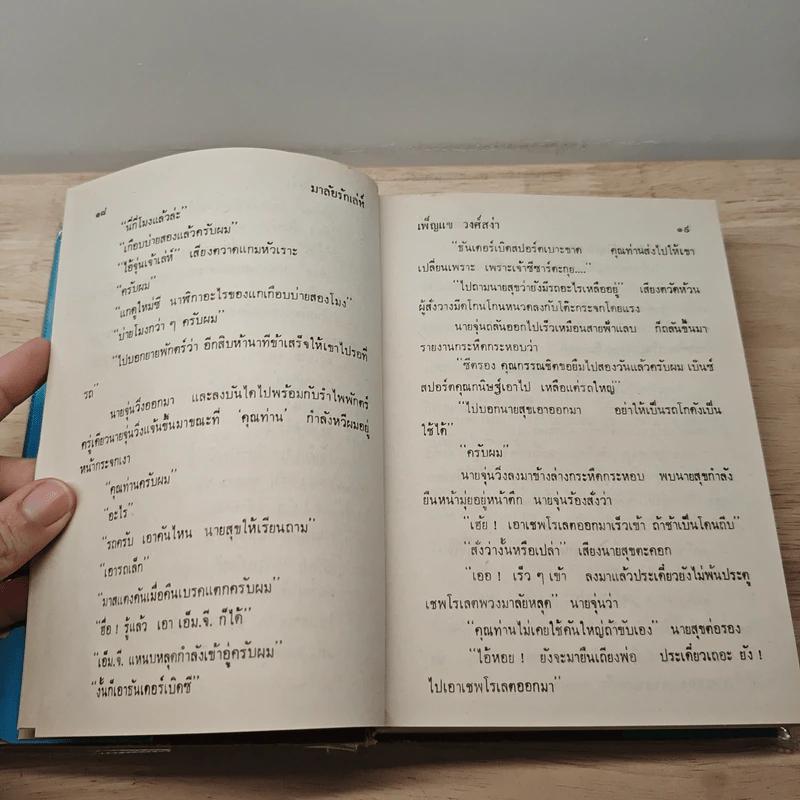 ๑๘
มาลัยรักเล่ห์
“นี่กี่โมงแล้วล่ะ”
“เกือบบ่ายสองแล้วครับผม”
“ไอ้จุ่นเจ้าเล่ห์” เสียงตวาดแกมหัวเราะ
“ครับผม”
“แกดูใหม่ซี นาฬิกาอะไรของแกเกือบบ่ายสองโมง”
“บ่ายโมงกว่า ๆ ครับผม”
“ไปบอกยายพักตร์ว่า อีกสิบห้านาทีข้าเสร็จให้เขาไปรอที่
รถ”
นายจุ่นวิ่งออกมา และลงบันไดไปพร้อมกับรำไพพักตร์
ครู่เดียวนายจุ่นวิ่งแจ้นขึ้นมาขณะที่ ‘คุณท่าน’ กำลังหวีผมอยู่
หน้ากระจกเงา
“คุณท่านครับผม”
“อะไร”
“รถครับ เอาคันไหน นายสุขให้เรียนถาม”
“เอารถเล็ก”
“มาสแตงคันเมื่อคืนเบรคแตกครับผม”
“ฮื่อ ! รู้แล้ว เอา เอ็ม.จี. ก็ได้”
“เอ็ม.จี. แหนบหลุดกำลังเข้าอู่ครับผม”
“งั้นก็เอาธันเดอร์เบิดซี”
เพ็ญแข วงศ์สง่า
๑๙
“ธันเดอร์เบิดสปอร์ตเบาะขาด คุณท่านส่งไปให้เขา
เปลี่ยนเพราะ เพราะเจ้าซีซาร์ตะกุย....”
“ไปถามนายสุขว่ายังมีรถอะไรเหลืออยู่” เสียงตวัดห้วน
ผู้สั่งวางมีดโกนโกนหนวดลงกับโต๊ะกระจกโดยแรง
นายจุ่นถลันออกไปเร็วเหมือนสายฟ้าแลบ ก็ถลันขึ้นมา
รายงานกระหืดกระหอบว่า
“ซีตรอง คุณกรรณชิตขอยืมไปสองวันแล้วครับผม เบ๊นซ์
สปอร์ตคุณกนิษฐ์เอาไป เหลือแต่รถใหญ่”
“ไปบอกนายสุขเอาออกมา อย่าให้เป็นรถโกดังเป็น
ใช้ได้”
“ครับผม”
นายจุ่นวิ่งลงมาข้างล่างกระหืดกระหอบ พบนายสุขกำลัง
ยืนหน้ามุ่ยอยู่หน้าตึก นายจุ่นร้องสั่งว่า
“เฮ้ย ! เอาเชพโรเลตออกมาเร็วเข้า ถ้าช้าเป็นโดนถีบ”
“สั่งว่างั้นหรือเปล่า” เสียงนายสุขตะคอก
“เออ ! เร็ว ๆ เข้า ลงมาแล้วประเดี๋ยวยังไม่พ้นประตู
เชพโรเลตพวงมาลัยหลุด” นายจุ่นว่า
“คุณท่านไม่เคยใช้คันใหญ่ถ้าขับเอง” นายสุขต่อรอง
“ไอ้หอย ! ยังจะมายืนเถียงพ่อ ประเดี๋ยวเถอะ ยัง !
ไปเอาเชพโรเลตออกมา”